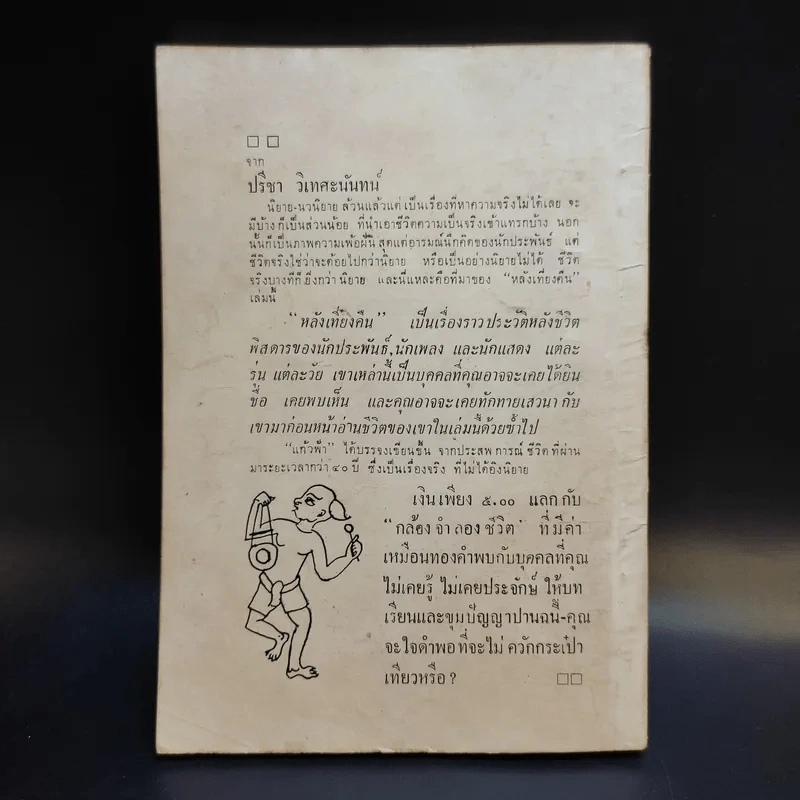 จาก
ปรีชา วิเทศะนันทน์
นิยาย-นวนิยาย ล้วนแล้วแต่ เป็นเรื่องที่หาความจริงไม่ได้เลย จะ
มีบ้าง ก็เป็นส่วนน้อย ที่นำเอาชีวิตความเป็นจริงเข้าแทรกบ้าง นอก
นั้นก็เป็นภาพความเพ้อฝัน สุดแต่อารมณ์นึกคิดของนักประพันธ์ แต่
ชีวิตจริงใช่ว่าจะด้อยไปกว่านิยาย หรือเป็นอย่างนิยายไม่ได้ ชีวิต
จริงบางทีก็ ยิ่งกว่า นิยาย และนี่แหละคือที่มาของ “หลังเที่ยงคืน”
เล่มนี้
“หลังเที่ยงคืน” เป็นเรื่องราว ประวัติหลังชีวิต
พิสดารของนักประพันธ์, นักเพลง และนักแสดง แต่ละ
รุ่น แต่ละวัย เขาเหล่านี้เป็นบุคคลที่คุณอาจจะเคยได้ยิน
ชื่อ เคยพบเห็น และคุณอาจจะเคยทักทายเสวนา กับ
เขามาก่อนหน้าอ่านชีวิตของเขาในเล่มนี้ด้วยซ้ำไป
“แก้วฟ้า” ได้บรรจงเขียนขึ้น จากประสพ การณ์ ชีวิต ที่ผ่าน
มาระยะเวลากว่า ๔๐ ปี ซึ่งเป็นเรื่องจริง ที่ไม่ได้อิงนิยาย
เงินเพียง ๕.๐๐ แลก กับ
“กล้อง จำ ลอง ชีวิต” ที่ มี ค่า
เหมือนทองคำพบกับบุคคลที่คุณ
ไม่เคยรู้ ไม่เคยประจักษ์ ให้บท
เรียนและขุมปัญญาปานฉนี้-คุณ
จะใจดำพอ ที่จะไม่ ควักกระเป๋า
เทียวหรือ ?